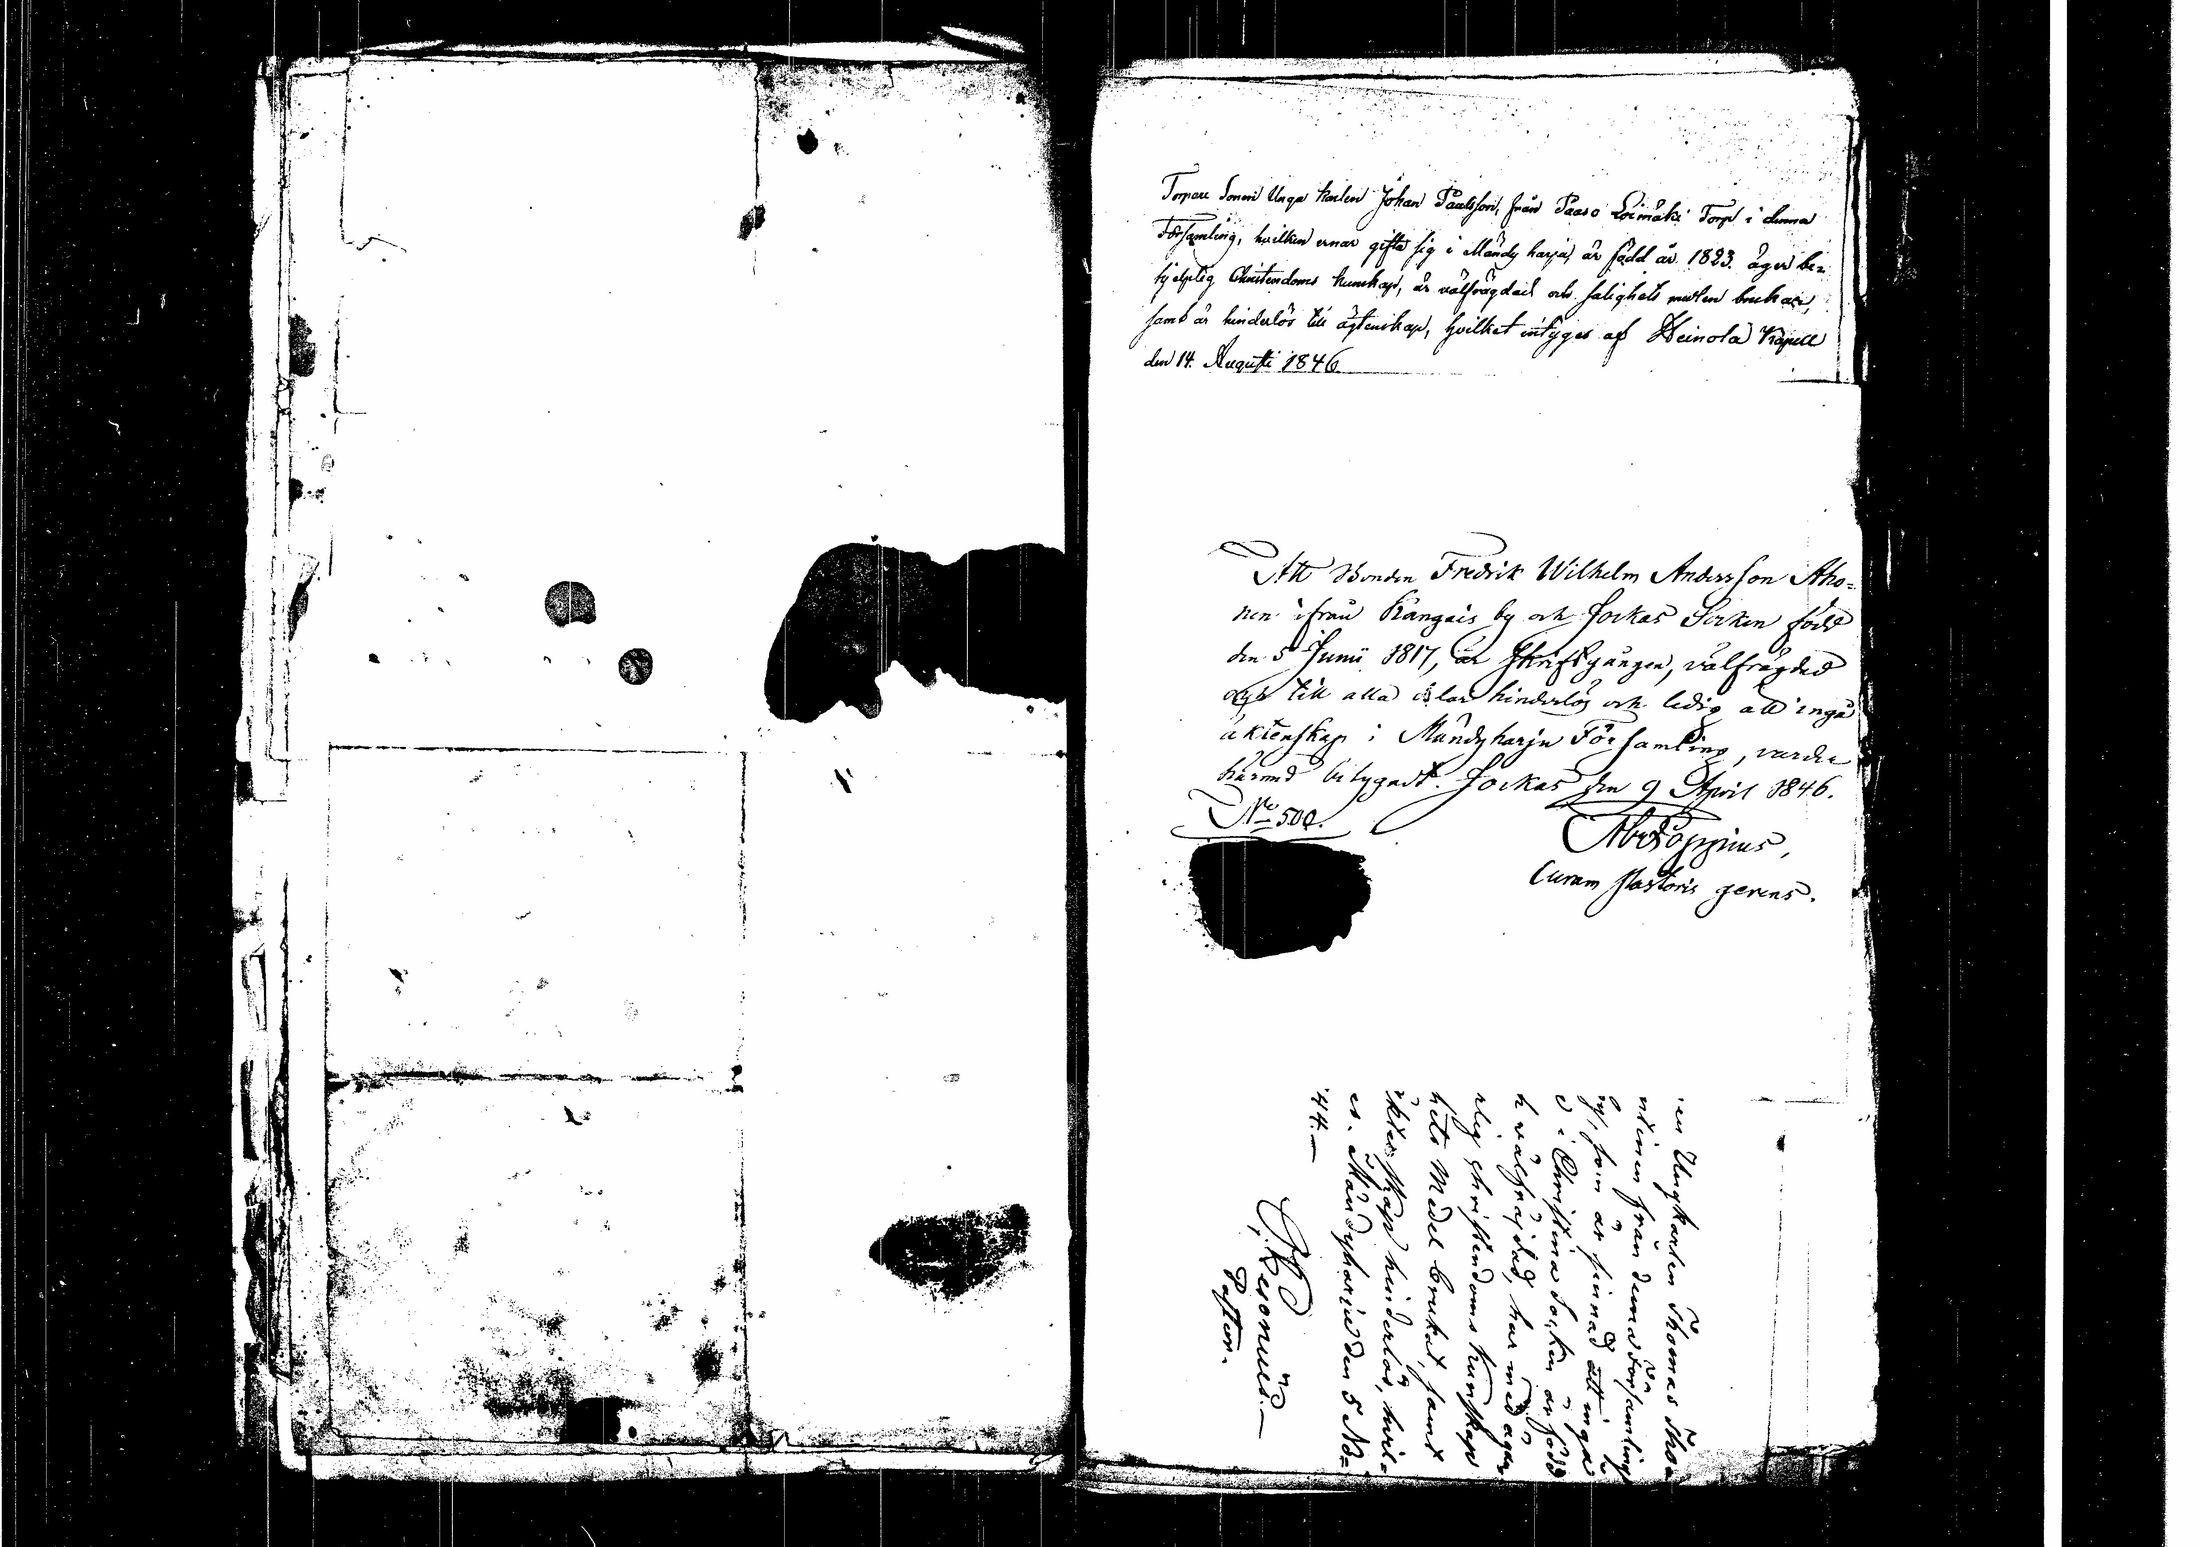 Torpare Sonen Unga karlen Johan Paulsson, från Paaso Loimäki Torp i denna
Församling, hvilken ernar gifta sig i Mändyharju, är född år 1823. äger be=
hjelplig Christendoms kunskap, är välfrägdad och salighets medlen brukar,
samt är hinderlös till ägtenskap, hvilket intyges af Heinola Kapell
den 14. Augusti 1846.
Att Bonden Fredrik Wilhelm Andersson Aho=
nen ifrån Kangais by och Jockas Socken född
den 5 Junii 1817, är skriftgången, välfrägdad
och till alla delar hinderlös och ledig att ingå
äktenskap i Mändyharju Församling, varder
härmed betygadt. Jockas den 9 April 1846.
No 500.
Ab. Poppius,
Curam Pastoris gerens.
en Ungkarlen Thomas Tho=
från denna Församling
by, som är sinnad att ingå
i Christina Socken är född
h välfräjdad, har med äger
rlig christendoms kunskap
hets Medel brukat, samt
äktenskap hinderlös, hvil=
es. Mändyharju den 5 No=
44.—
Pastor.